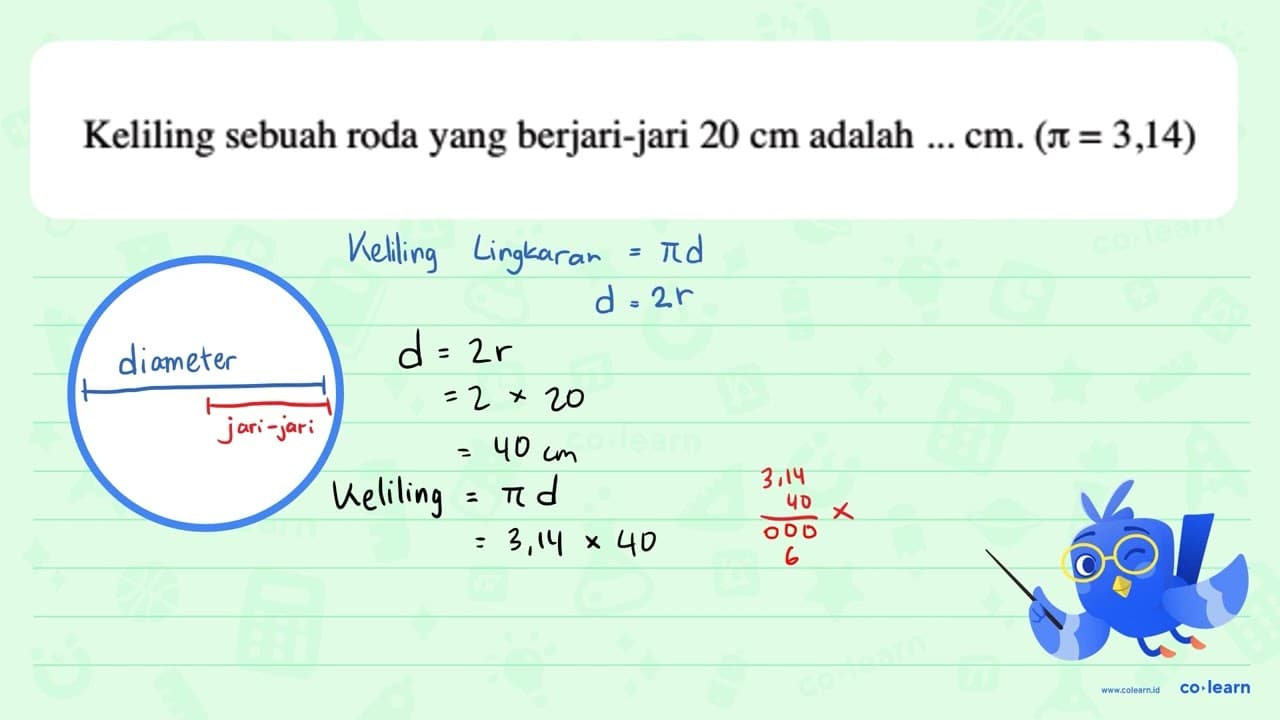 Keliling sebuah roda yang berjari-jari 20 cm adalah ... cm. (π = 3,14)
Keliling Lingkaran = πd
d = 2r
diameter
jari-jari
d = 2r
= 2 × 20
= 40 cm
Keliling = πd
= 3,14 × 40
3,14
40 ×
000
6
www.colearn.id
co·learn
co·learn
co·learn
co·learn